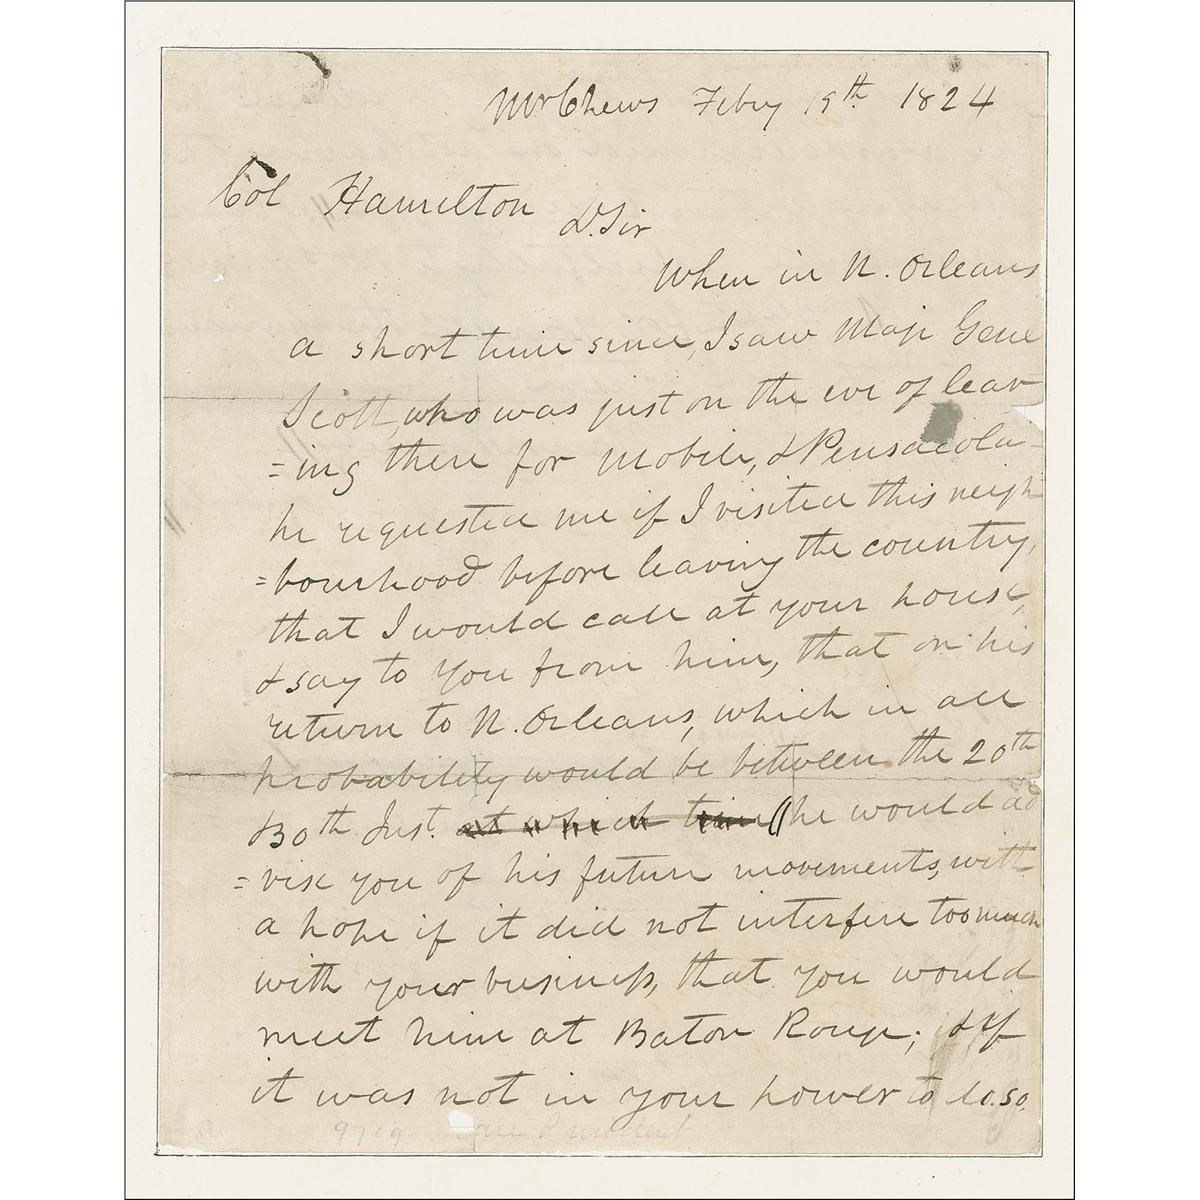 Mr Chews Feby 19th 1824
Col Hamilton
D. Sir
When in N. Orleans
a short time since, I saw Majr Genl
Scott, who was just on the eve of leav
=ing there for Mobile, & Pensacola -
he requested me if I visited this neigh
=bourhood before leaving the country,
that I would call at your house,
& say to you from him, that on his
return to N. Orleans, which in all
probability would be between the 20th
& 30th Inst. at which time he would ad
=vise you of his future movements, with
a hope if it did not interfere too much
with your business, that you would
meet him at Baton Rouge; & if
it was not in your power to do so
9709